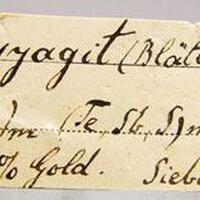 yagit (Blätt
(Te, Sb, S)
% Gold. Sieb